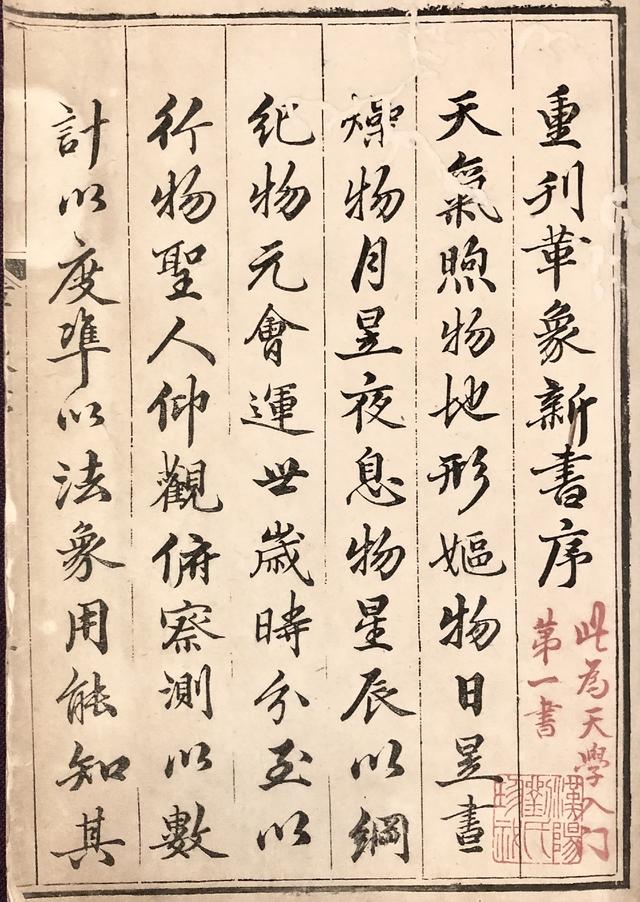 重刊革象新書序
此為天學入門
第一書
漢陽
劉氏
天氣煦物地形嫗物日昱晝
燥物月昱夜息物星辰以綱
紀物元會運世歲時分至以
行物聖人仰觀俯察測以數
計以度準以法象用能知其